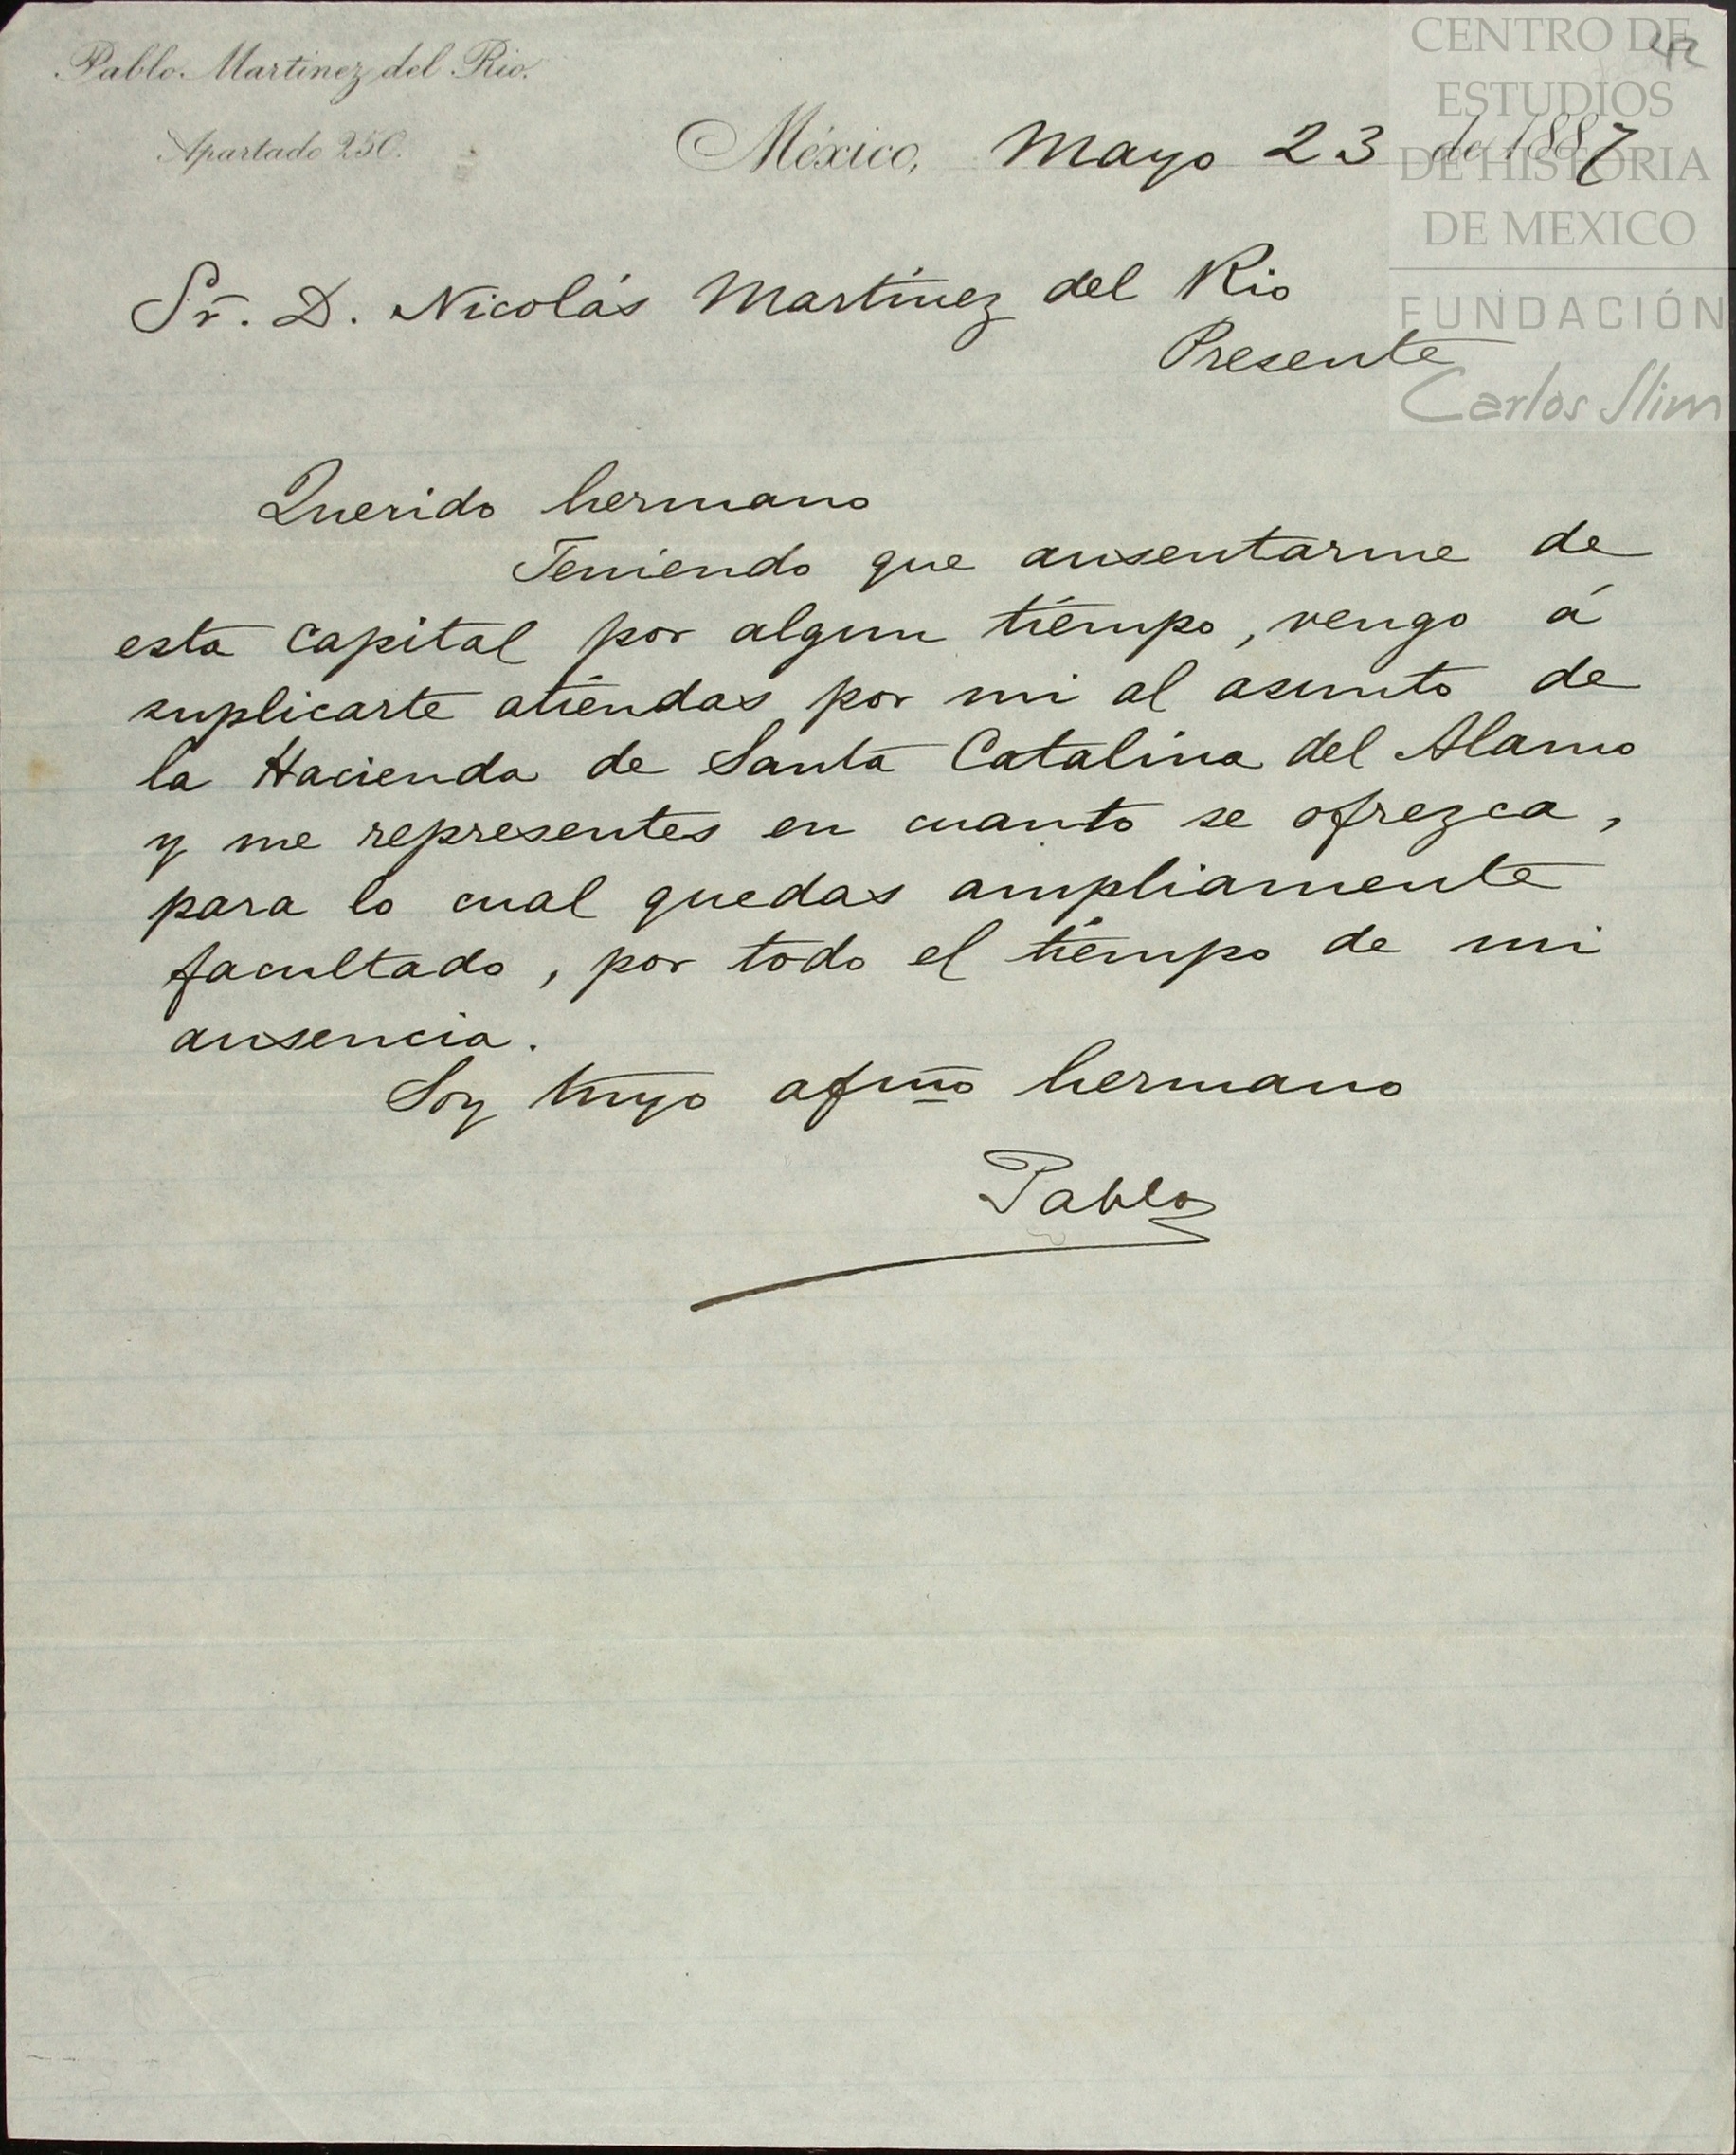 Pablo Martinez del Rio.
Apartado 250.
42
México, Mayo 23 de 1887
CENTRO DE
ESTUDIOS
DE HISTORIA
DE MEXICO
FUNDACIÓN
Carlos Slim
Sr. D. Nicolás Martínez del Rio
Presente
Querido hermano
Teniendo que ausentarme de
esta capital por algun tiempo, vengo á
suplicarte atiendas por mi al asunto de
la Hacienda de Santa Catalina del Alamo
y me representes en cuanto se ofrezca,
para lo cual quedas ampliamente
facultado, por todo el tiempo de mi
ausencia.
Soy tuyo afmo hermano
Pablo